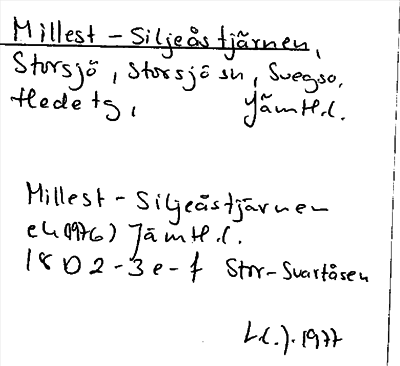 Millest - Siljeåstjärnen,
Storsjö, Storsjö sn, Svegs o.
Hede tg, Jämtl.l.
Millest - Siljeåstjärnen
(1976) Jämtl.l.
18 D 2-3 e-f Stor-Svartåsen
1977